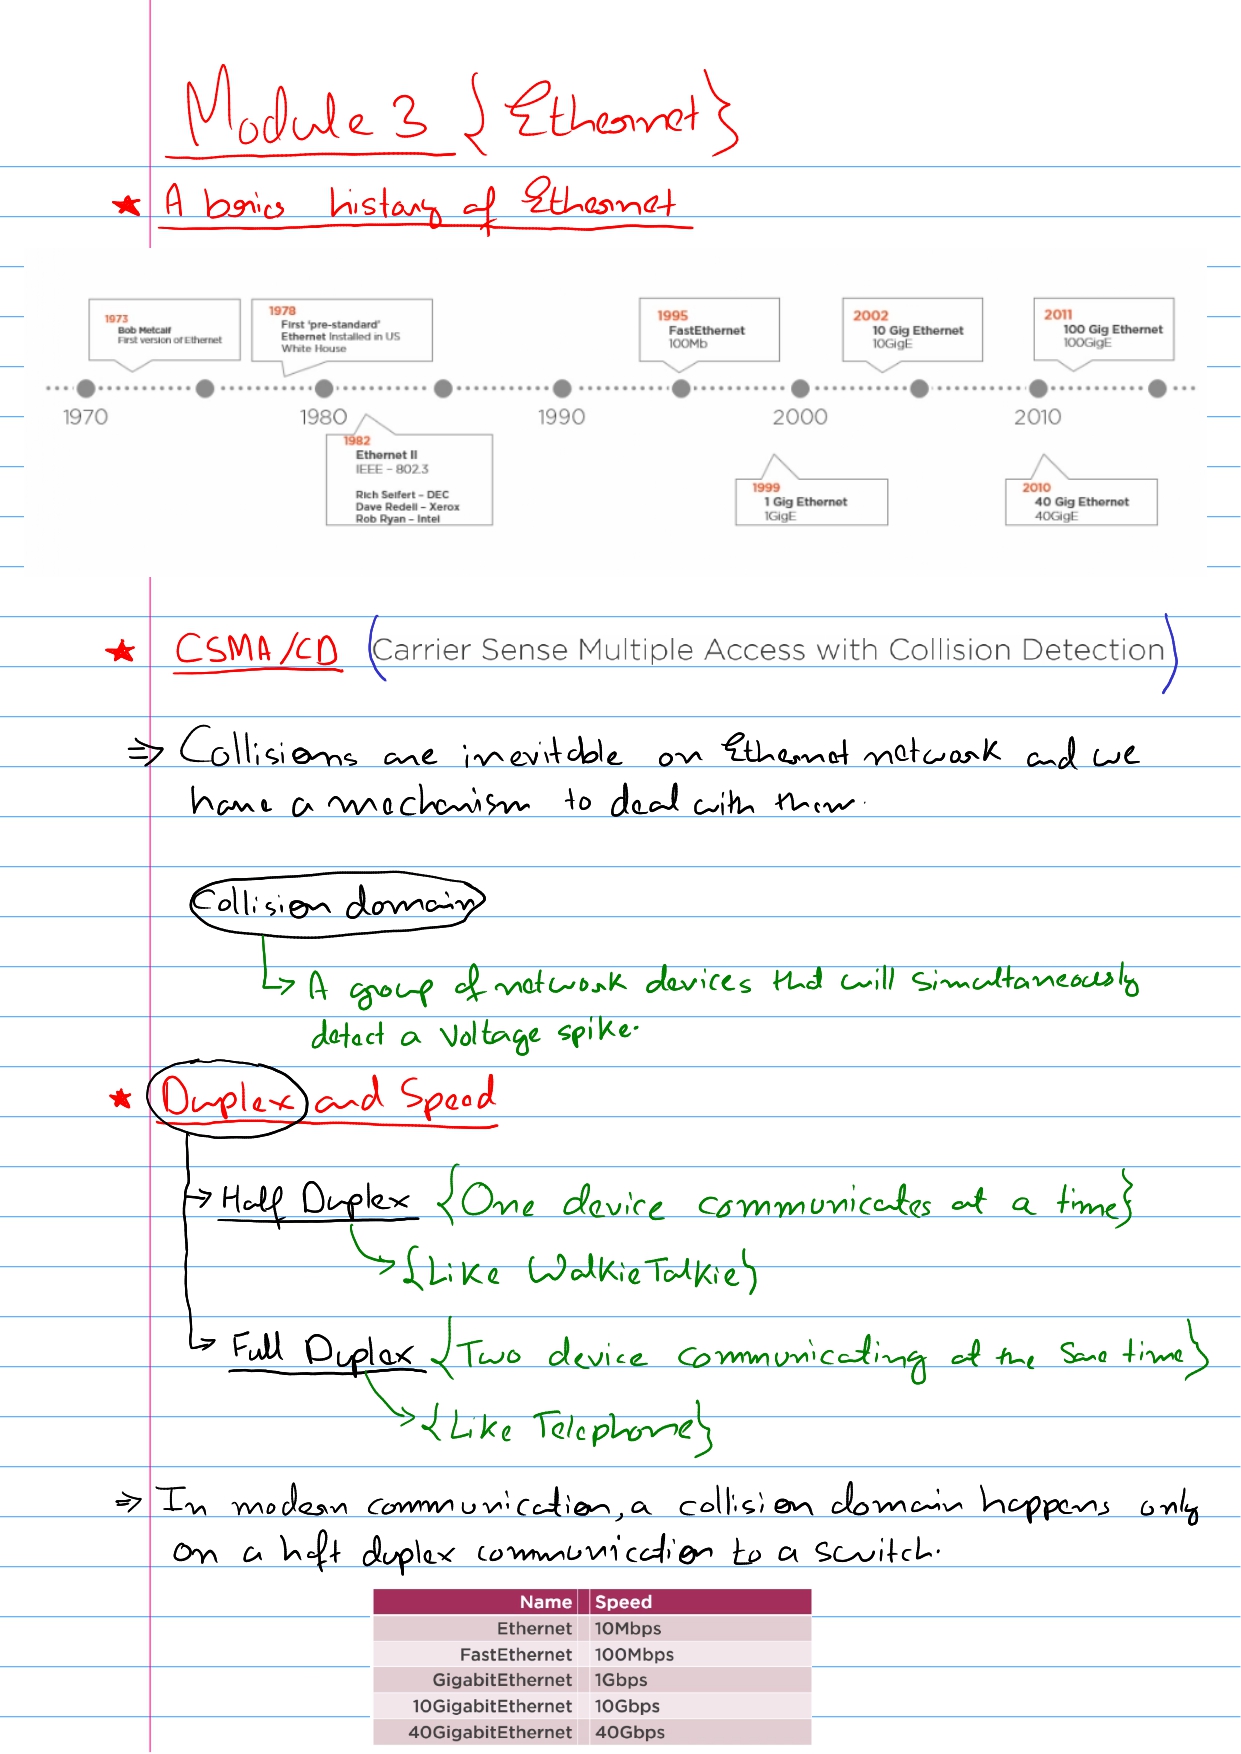 Module 3 {Ethernet}
★ A brics history of Ethernet
1973
Bob Metcalf
First version of Ethernet
1978
First 'pre-standard'
Ethernet Installed in US
White House
1995
FastEthernet
100Mb
2002
10 Gig Ethernet
10GigE
2011
100 Gig Ethernet
100GigE
1970 1980 1990 2000 2010
1982
Ethernet II
IEEE – 802.3
Rich Seifert – DEC
Dave Redell – Xerox
Rob Ryan – Intel
1999
1 Gig Ethernet
1GigE
2010
40 Gig Ethernet
40GigE
★ CSMA/CD (Carrier Sense Multiple Access with Collision Detection)
⇒ Collisions are inevitable on Ethernet network and we
have a mechanism to deal with them.
Collision domain
↳ A group of network devices that will simultaneously
detect a voltage spike.
★ Duplex and Speed
→ Half Duplex {One device communicates at a time}
→ {Like WalkieTalkie}
↳ Full Duplex {Two device communicating at the same time}
→ {Like Telephone}
⇒ In modern communication, a collision domain happens only
on a half duplex communication to a switch.
Name Speed
Ethernet 10Mbps
FastEthernet 100Mbps
GigabitEthernet 1Gbps
10GigabitEthernet 10Gbps
40GigabitEthernet 40Gbps